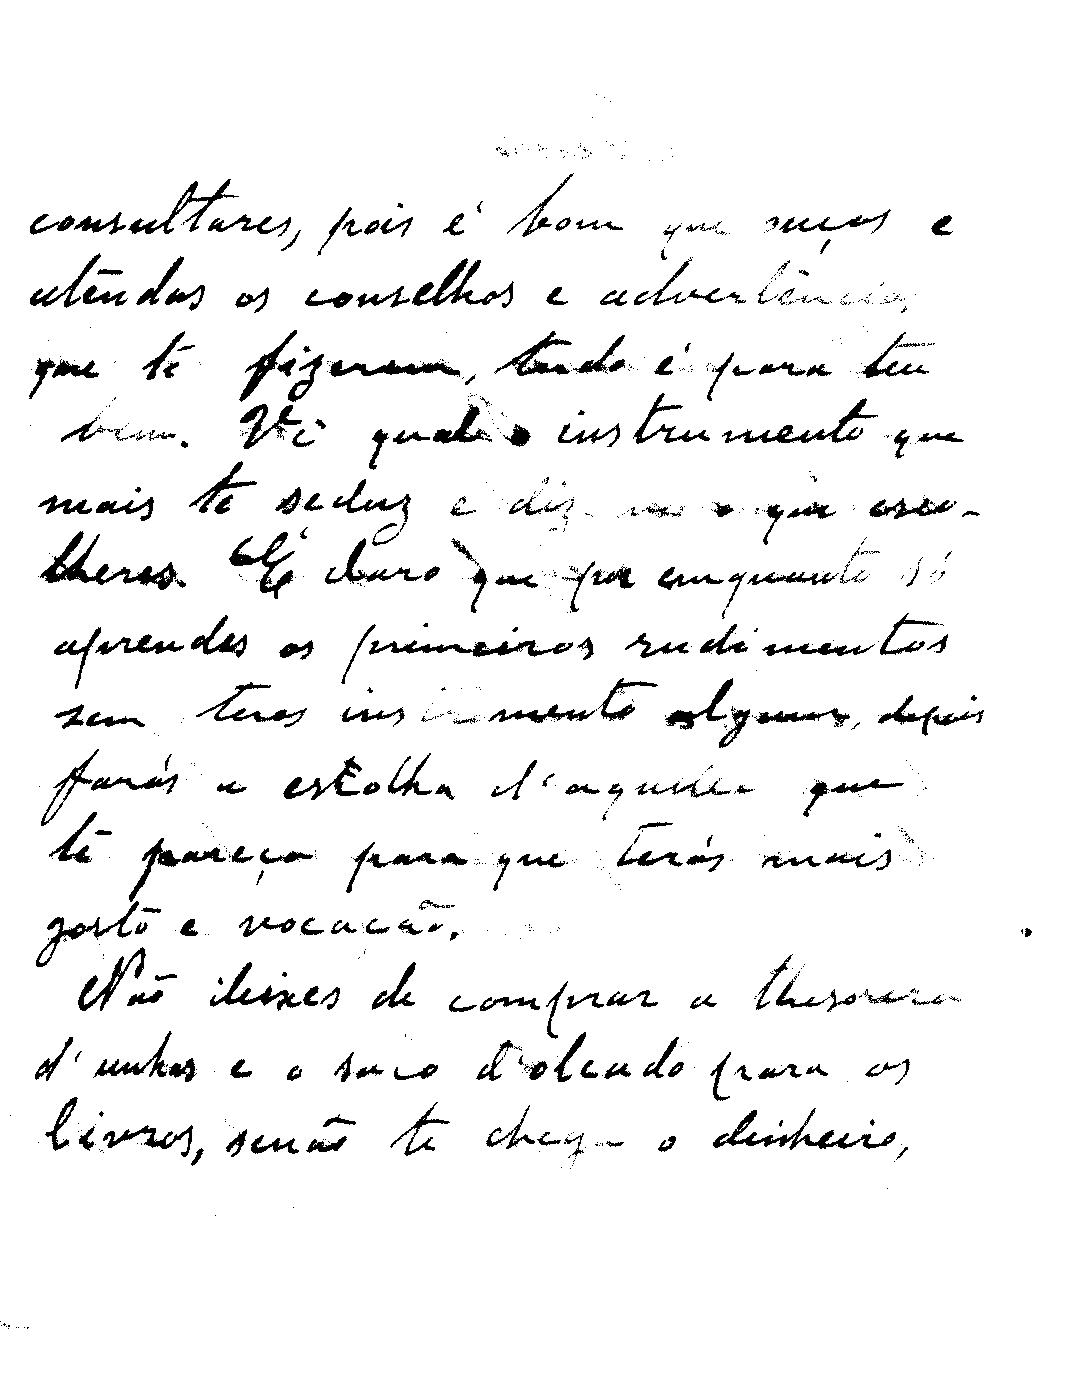 consultares, pois é bom que ouças e
atendas os conselhos e advertências
que te fizerem, tudo é para teu
bem. Vê qual o instrumento que
mais te seduz e diz-me o que esco-
lheres. É claro que por emquanto só
aprendes os primeiros rudimentos
sem teres instrumento algum, depois
farás a escolha d'aquelle que
te pareça para que terás mais
gosto e vocacão.
Não deixes de comprar a thesoura
d'unhas e o saco d'oleado para os
livros, senão te chega o dinheiro,